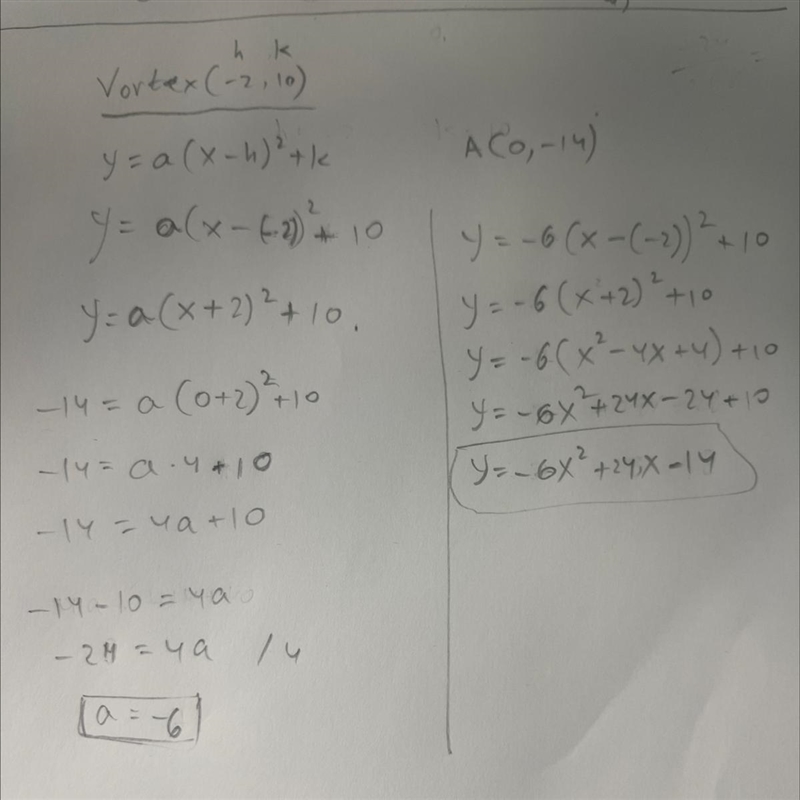 h k
Vortex(-2, 10)
y = a(x-h)²+k
y = a(x-(-2))²+10
y = a(x+2)²+10.
-14 = a(0+2)²+10
-14 = a·4+10
-14 = 4a+10
-14-10 = 4a
-24 = 4a /4
a = -6
A(0, -14)
y = -6(x-(-2))²+10
y = -6(x+2)²+10
y = -6(x²-4x+4)+10
y = -6x²+24x-24+10
y = -6x²+24x-14